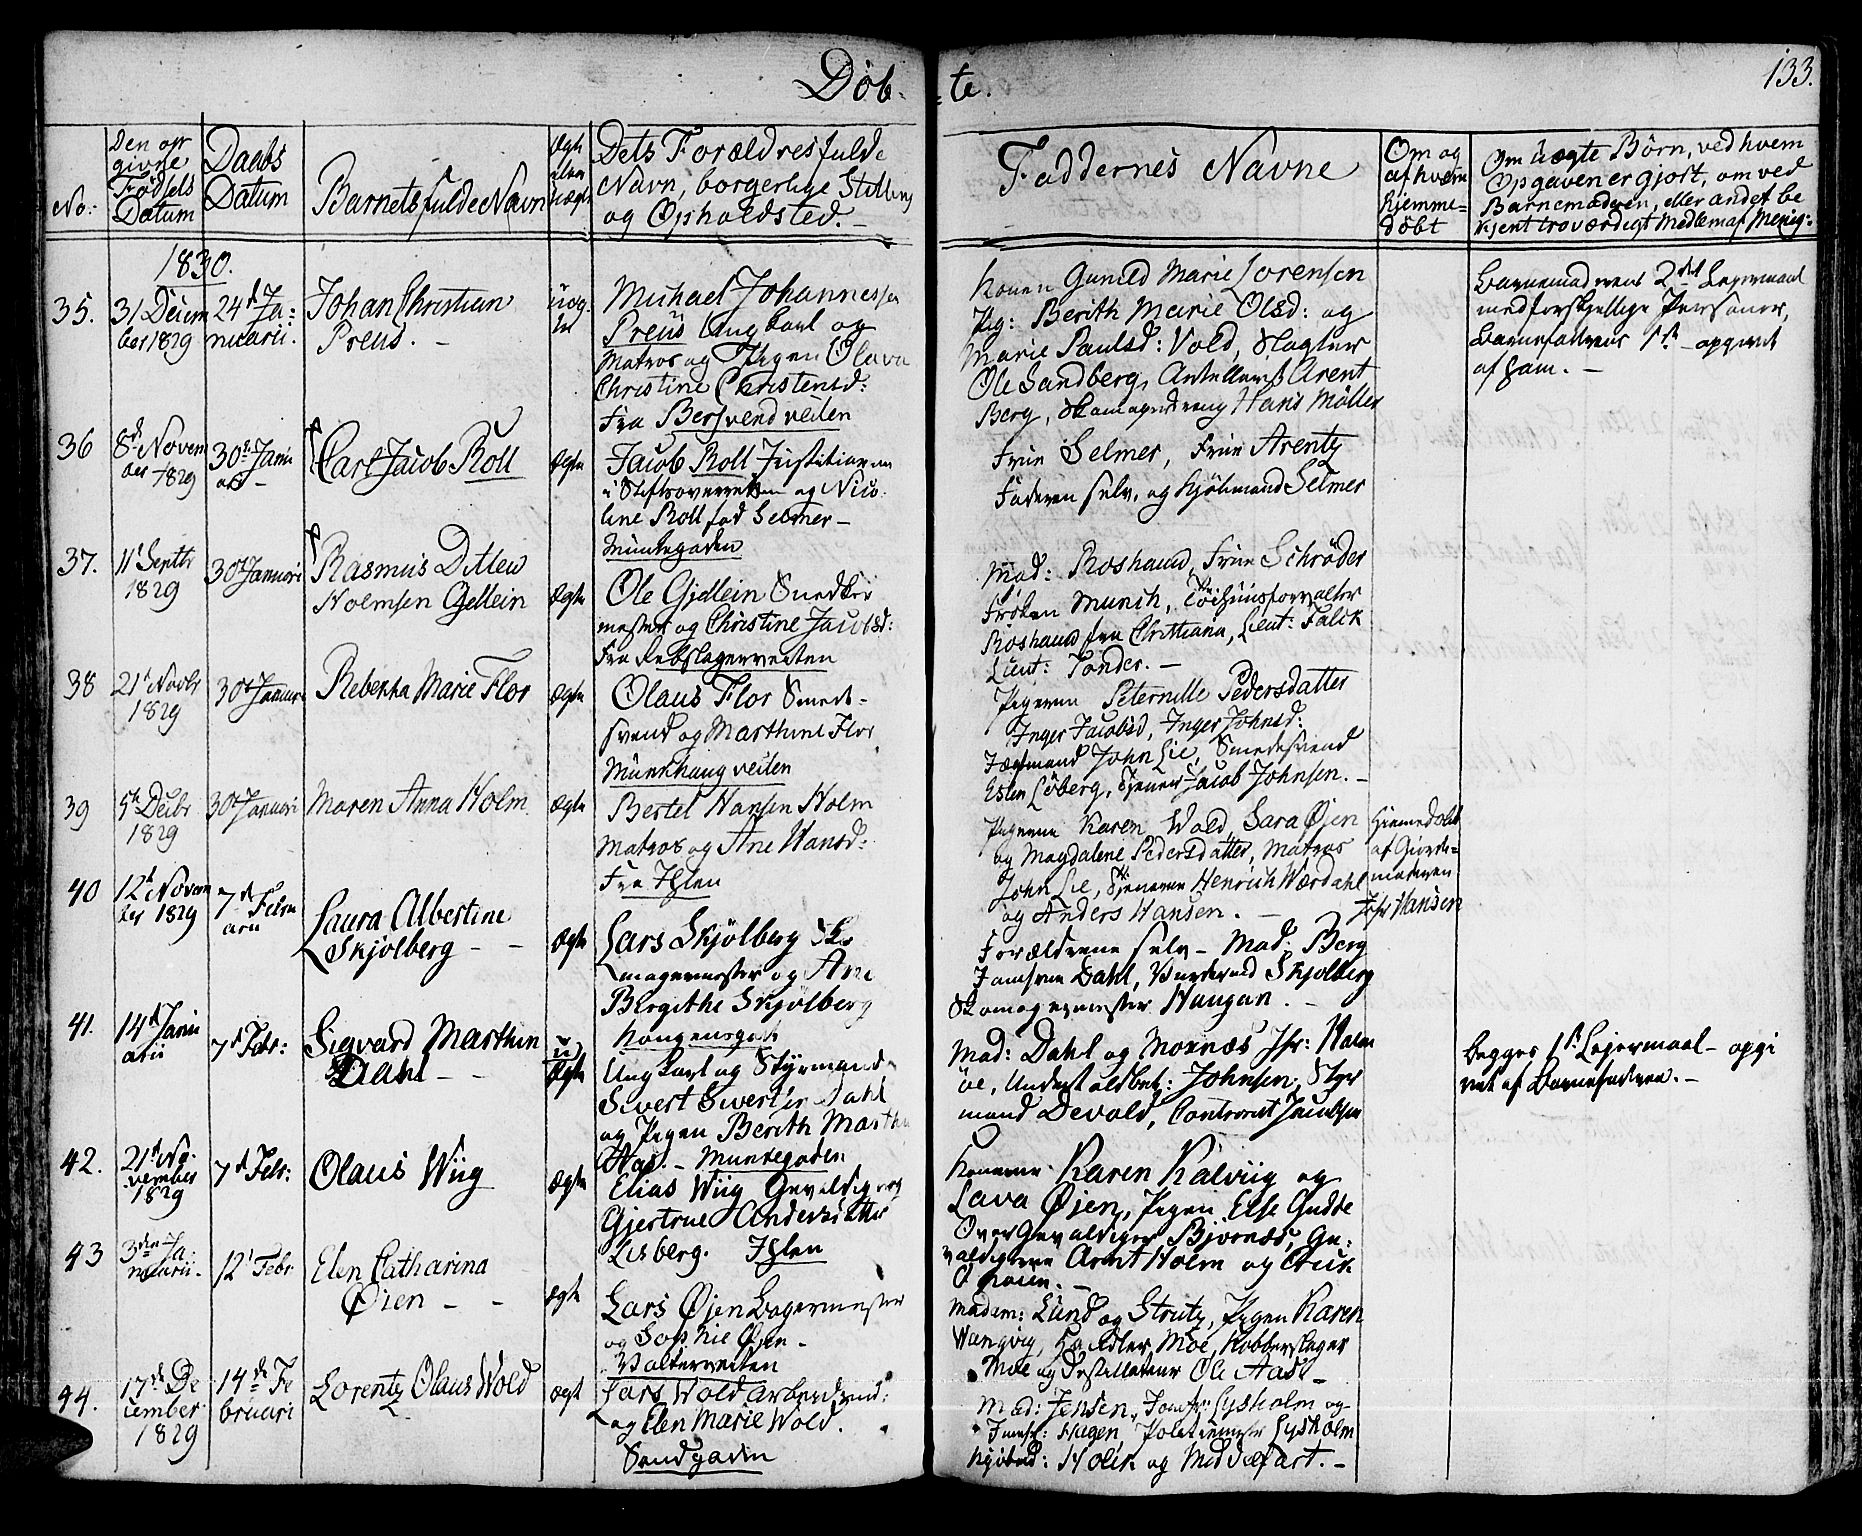 Døb-
te.
133.
No:
Den op
givne
Fødsels
Datum
Daabs
Datum
Barnets fulde Navn
Ægte
eller
uægte
Dets Forældres fulde
Navn, borgerlige Stilling
og Opholdsted.
Faddernes Navne
Om og
af hvem
hjemme-
døbt
Om uægte Börn, ved hvem
Opgaven er gjort, om ved
Barnemoderen, eller andet be
kjent troværdigt Medlem af Menig:
1830.
35.
31 Decem
ber 1829
24d Ja-
nuarii.
Johan Christian
Preus. -
uæg
te
Michael Johannessen
Preus Ungkarl og
Matros og Pigen Olava
Christine Christensd:
Fra Bersvendveiten
Konen Gunild Marie Sorensen
Pig: Berith Marie Olsd: og
Marie Paulsd: Vold, Slagter
Ole Sandberg, Arent
Berg, Skomagerdreng Hans Möller
Barnemoderens 2det Lejermaal
med forskjellige Personer,
Barnefaderens 1ste opgivet
af ham. -
36
8d Novem
ber 1829
30te Janu
arii -
Carl Jacob Roll
Ægte
Jacob Roll Justitiarius
i Stiftsoverretten og Nico-
line Roll fød Selmer -
Munkegaden
Frue Selmer, Frue Arentz
Faderen selv, og Kjöbmand Selmer
37.
11t Septbr
1829
30t Januari
Rasmus Ditlew
Holmsen Gjellein
Ægte
Ole Gjellein Snedker
mester og Christine Jacobsd:
Fra Rebslagerveiten
Mad: Roshaud, Frue Schrøder
Frøken Munch, Tøihuusforvalter
Roshaud fra Christiania, Lieut: Falck
Lieut: Tonder. -
38
21t Novbr
1829
30t Januari
Rebekka Marie Flor
Ægte
Olaus Flor Smede-
svend og Marthine Flor
Munkhaugveiten
Pigerne Peternille Pedersdatter
Inger Jacobsd, Inger Johnsd:
John Lie, Smedesvend
Esten Löberg, Tjener Jacob Johnsen. -
39
5te Decbr
1829
30t Januari
Maren Anna Holm
Ægte
Bertel Hansen Holm
Matros og Ane Hansd:
Fra Ihlen
Pigerne Karen Wold, Sara Øjen
og Magdalene Pedersdatter, Matros
John Lie, Tjenerne Henrich Wærdahl
og Anders Hansen. -
Hiemedøbt
af Giorde-
moderen
Jfr Hansen
40
12t Novem
ber 1829
7d Febru
arii
Laura Albertine
Skjölberg - -
Ægte
Lars Skjölberg Sko
magermester og Ane
Bergithe Skjölberg
Kongensgade
Forældrene selv - Mad: Berg
Jomfrue Dahl, Skjolberg
Skomagermester Haugan. -
41.
14d Janu
arii
7d Febr:
Sigvard Marthin
Dahl - -
u
Ægte
Ungkarl og Styrmand
Sivert Sivertsen Dahl
og Pigen Berith Martha
Aas. - Munkegaden
Mad: Dahl og Moxnæs Jfr: Holm
öe, Johnsen, Styr
mand Devold, Jacobsen
begges 1ste Lejermaal - opgi
vet af Barnefaderen. -
42.
21d No-
vember
1829
7d Febr:
Olaus Wiig
Ægte
Elias Wiig Gevaldiger og
Gjertrue Andersdatter
Lisberg. Ihlen
Konerne Karen Kalviig og
Lava Øjen, Pigen Else Gudde
Overgevaldiger Bjørnæs, Ge-
valdigerne Arnt Holm og Erik
43
3die Ja-
nuarii.
12t Febr
Elen Catharina
Øien - -
Ægte
Lars Øjen Bagermester
og Sophie Øjen -
Vatterveiten
Madm: Lund og Strutz, Pigen Karen
Wangvig, Moe, Kobberslager
Moe og Destillateur Ole Aad
44.
17de De
cember
1829
14de Fe
bruari
Lorentz Olaus Wold
Ægt
Lars Wold Arbeidsmd:
og Elen Marie Wold.
Sandgaden
Mad: Jensen, Jomfr: Lysholm og
Jomfr: Hagen, Politiemester Lysholm
Kjöbmd: Holck og Middelfart. -